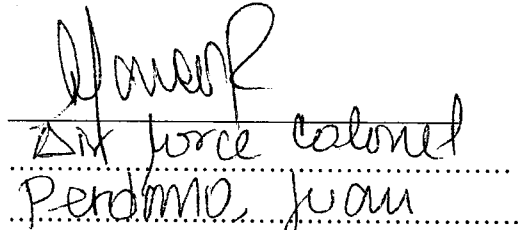 Air force colonel
Perdomo, Juan